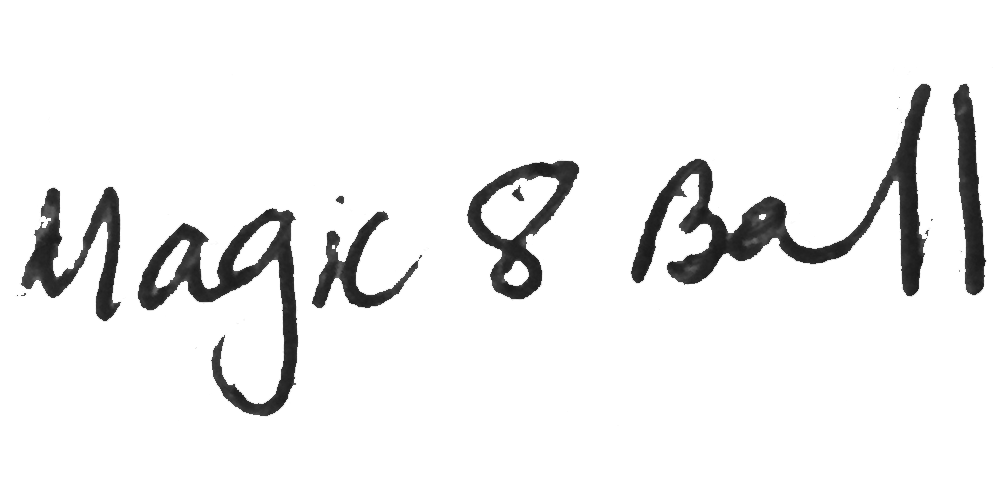 Magic 8 Ball